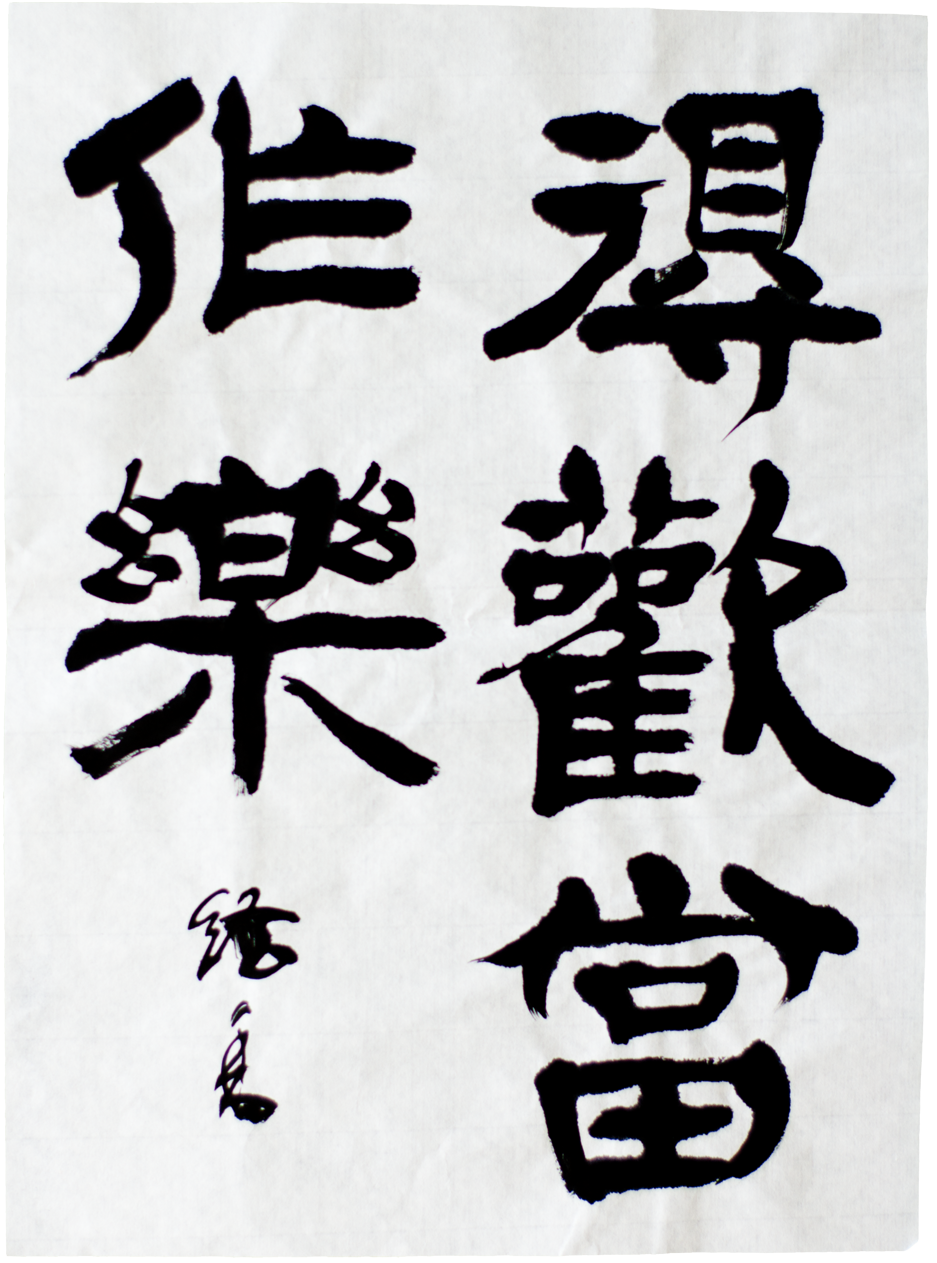 得歡當
作樂